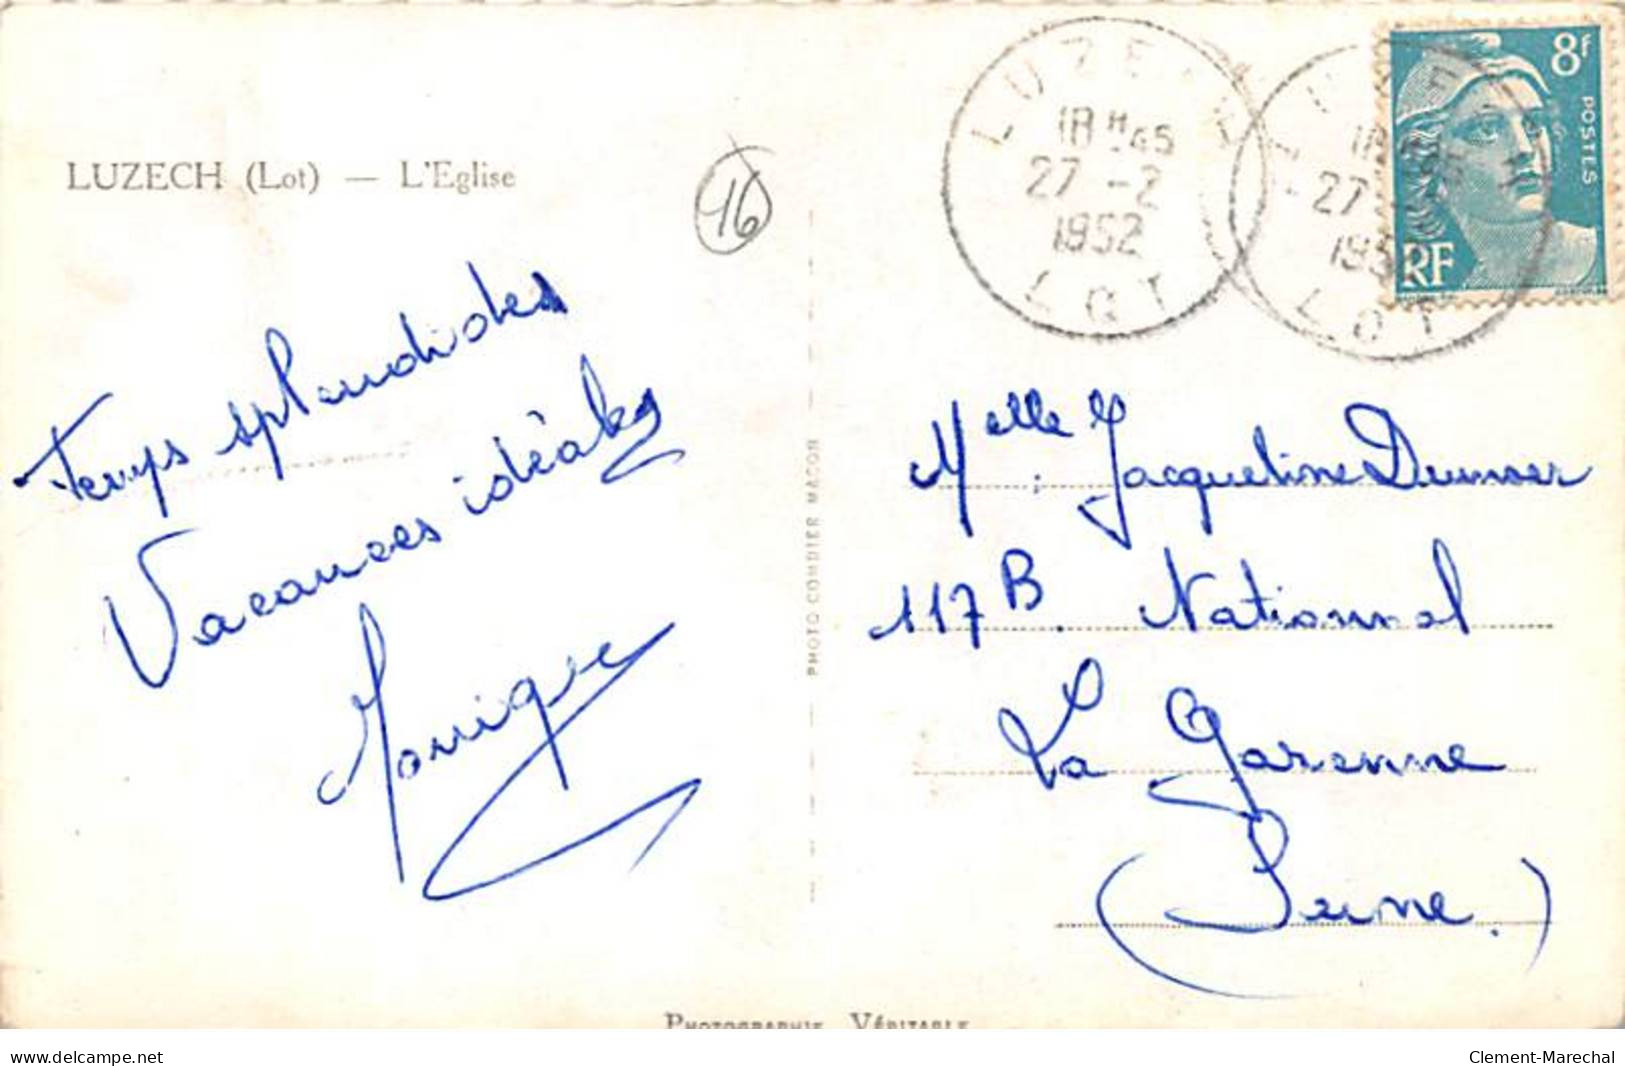 LUZECH (Lot) — L'Eglise
16
Temps splendides
Vacances idéales
Monique
PHOTO COMBIER MACON
LUZECH
18H45
27 -2
1952
LOT
18
27
195
LOT
8F
POSTES
RF
Melle Jacqueline
117 B. National
La Garenne
(Seine.)
PHOTOGRAPHIE VÉRITABLE
www.delcampe.net
Clement-Marechal